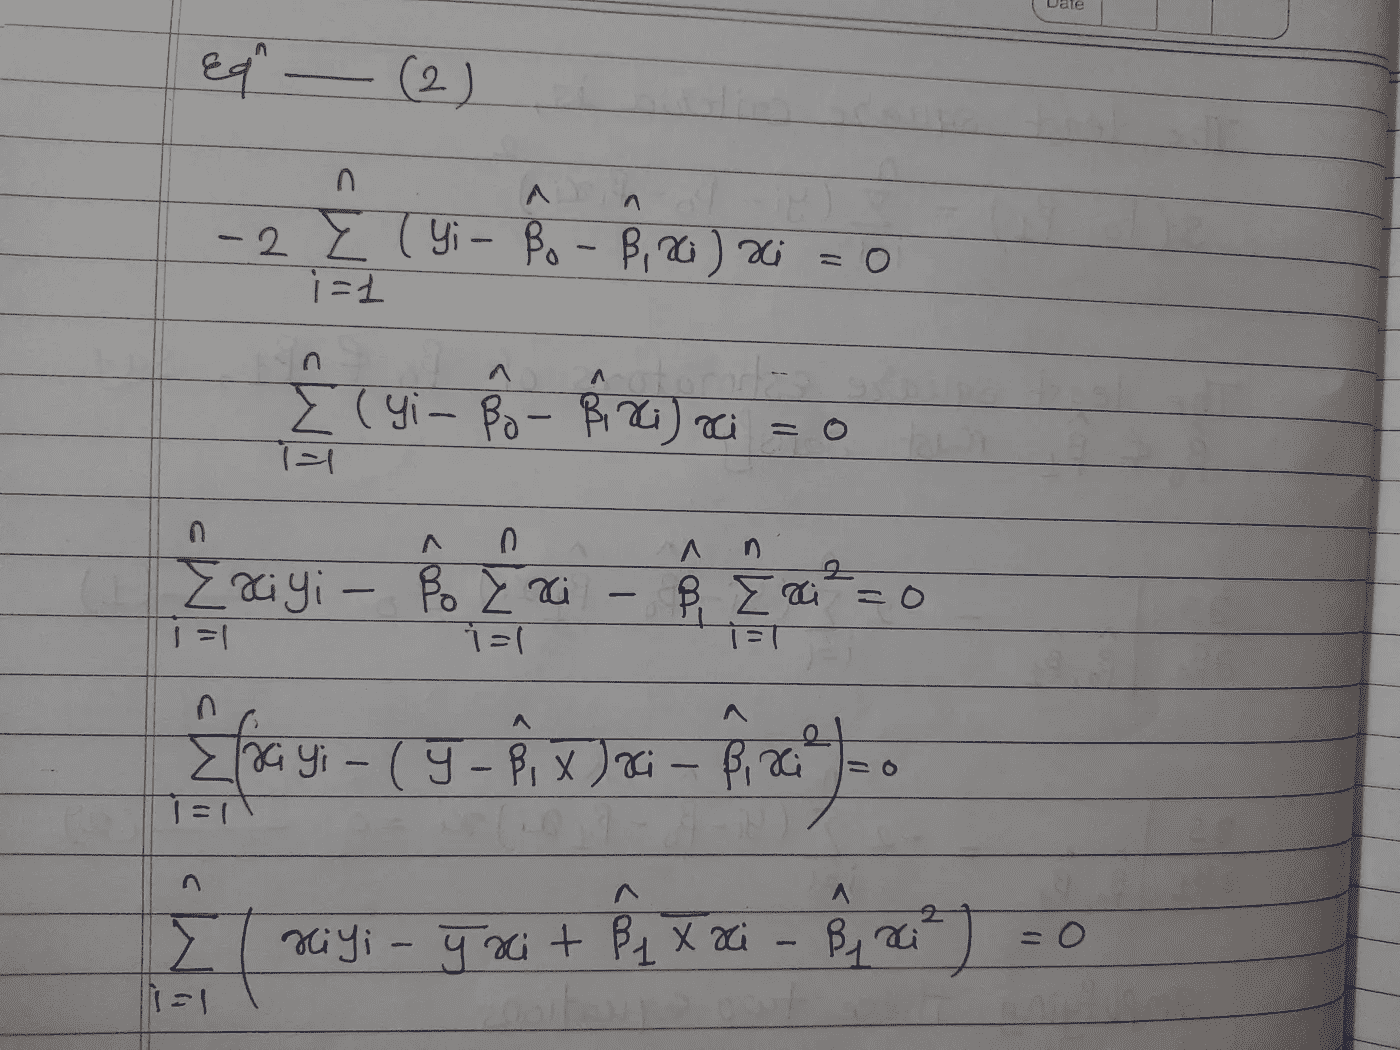 Date
Eqⁿ — (2)
-2 Σ_{i=1}^{n} (yi - β̂₀ - β̂₁xi) xi = 0
Σ_{i=1}^{n} (yi - β̂₀ - β̂₁xi) xi = 0
Σ_{i=1}^{n} xiyi - β̂₀ Σ_{i=1}^{n} xi - β̂₁ Σ_{i=1}^{n} xi² = 0
Σ_{i=1}^{n} (xiyi - (ȳ - β̂₁x̄)xi - β̂₁xi²) = 0
Σ_{i=1}^{n} (xiyi - ȳxi + β̂₁x̄xi - β̂₁xi²) = 0